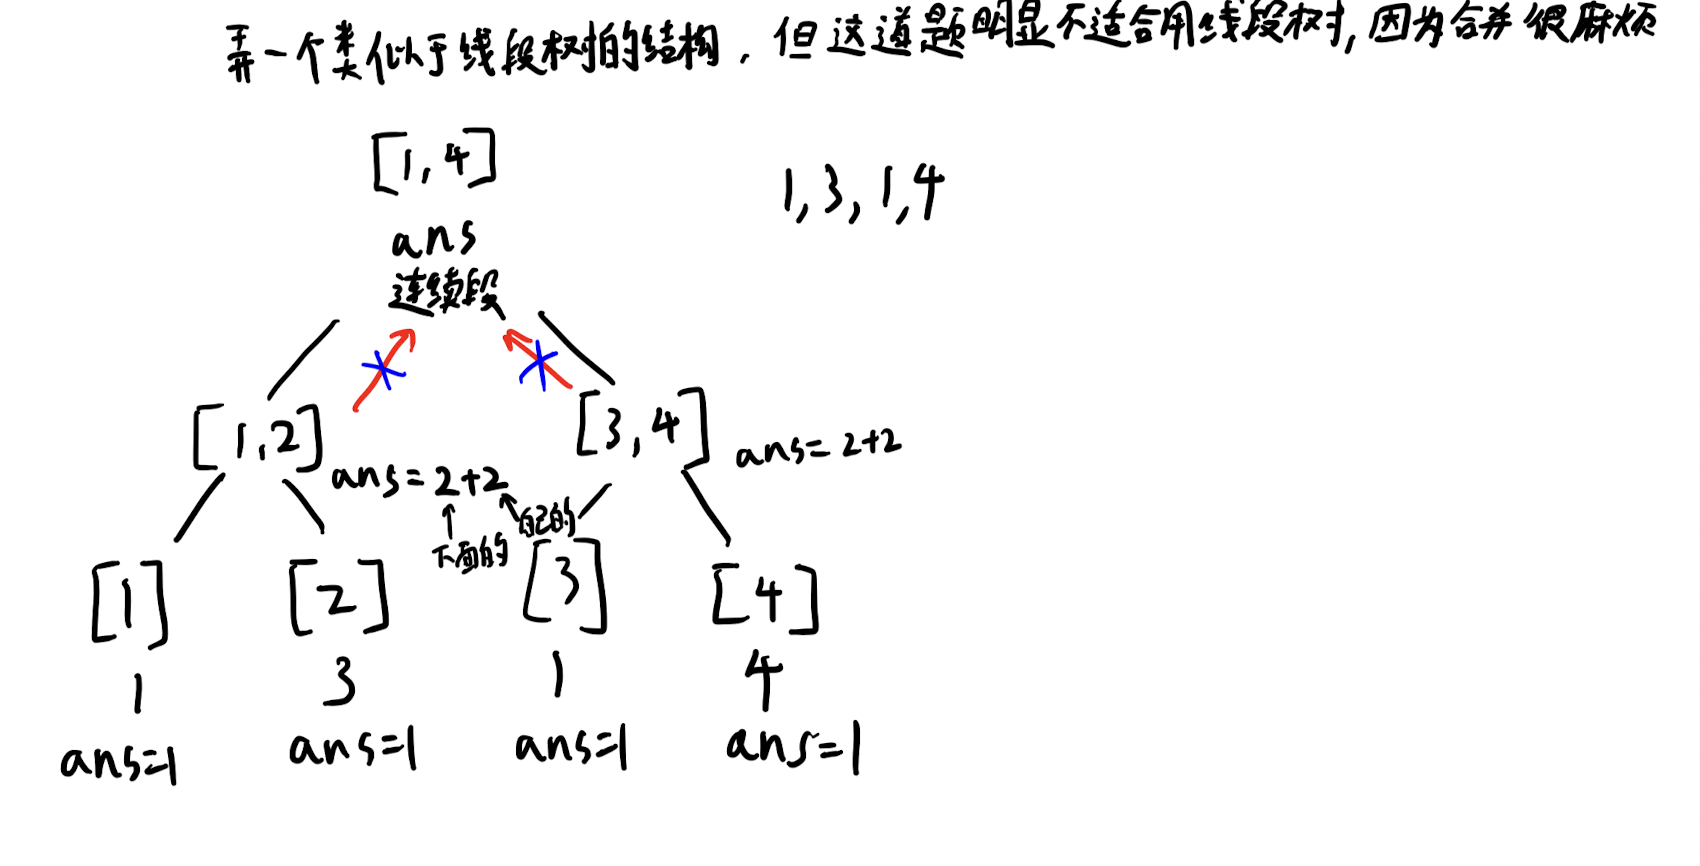 弄一个类似于线段树的结构，但这道题明显不适合用线段树，因为合并很麻烦
[1,4]
1,3,1,4
ans
连续段
[1,2]
[3,4]
ans=2+2
ans=2+2
自己的
下面的
[1]
[2]
[3]
[4]
1
3
1
4
ans=1
ans=1
ans=1
ans=1